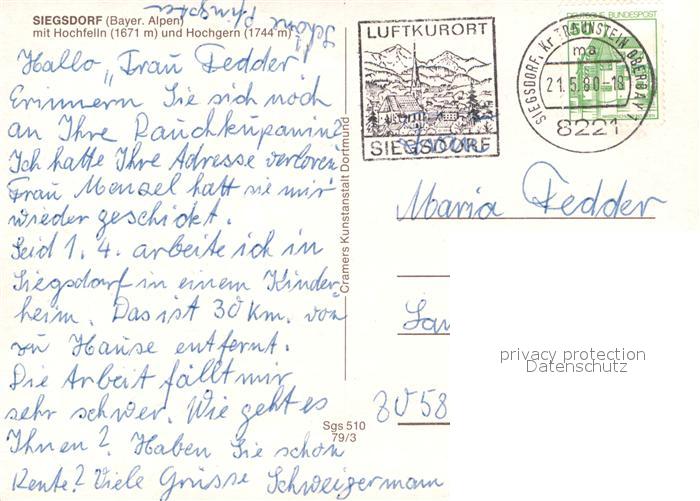 SIEGSDORF (Bayer. Alpen)
mit Hochfelln (1671 m) und Hochgern (1744 m)
Schöne Pfingsten
Hallo „Frau Fedder"
Erinnern Sie sich noch
an Ihre
Ich hatte Ihre Adresse verloren
Frau Mensel hatt sie mir
wieder geschickt.
Seid 1. 4. arbeite ich in
Siegsdorf in einem Kinder
heim. Das ist 30 km. von
zu Hause entfernt.
Die Arbeit fällt mir
sehr schwer. Wie geht es
Ihnen? Haben Sie schon
Rente? Viele Grüsse Schweigermann
Cramers Kunstanstalt Dortmund
Sgs 510
79/3
LUFTKURORT
SIEGSDORF
DEUTSCHE BUNDESPOST
50
SIEGSDORF, Kr TRAUNSTEIN OBERBAY
ma
21.5.80-18
8221
Frau
Maria Fedder
3058
privacy protection
Datenschutz